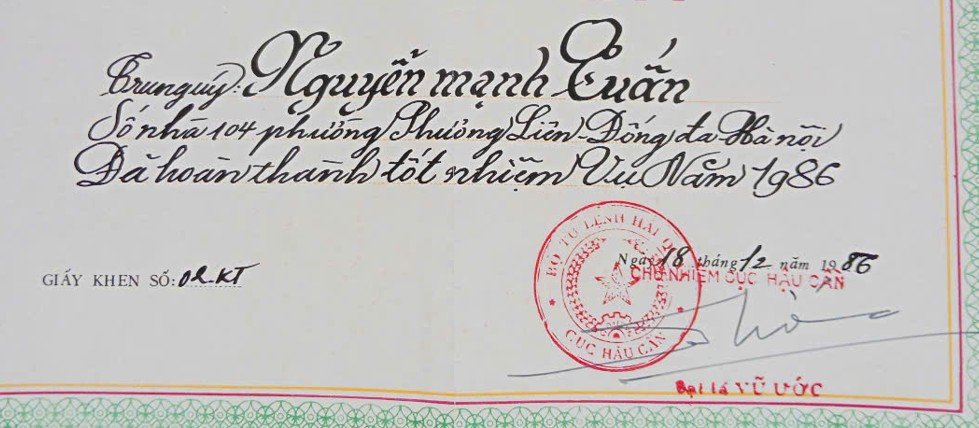 Trung úy: Nguyễn mạnh Tuấn
Số nhà 104 phường Phương Liên Đống đa Hà nội
Đã hoàn thành tốt nhiệm Vụ Năm 1986
BỘ TƯ LỆNH HẢI QUÂN
CỤC HẬU CẦN
Ngày 18 tháng 12 năm 1986
GIẤY KHEN SỐ: 02.KT
CHỦ NHIỆM CỤC HẬU CẦN
Đại tá VŨ ƯỚC